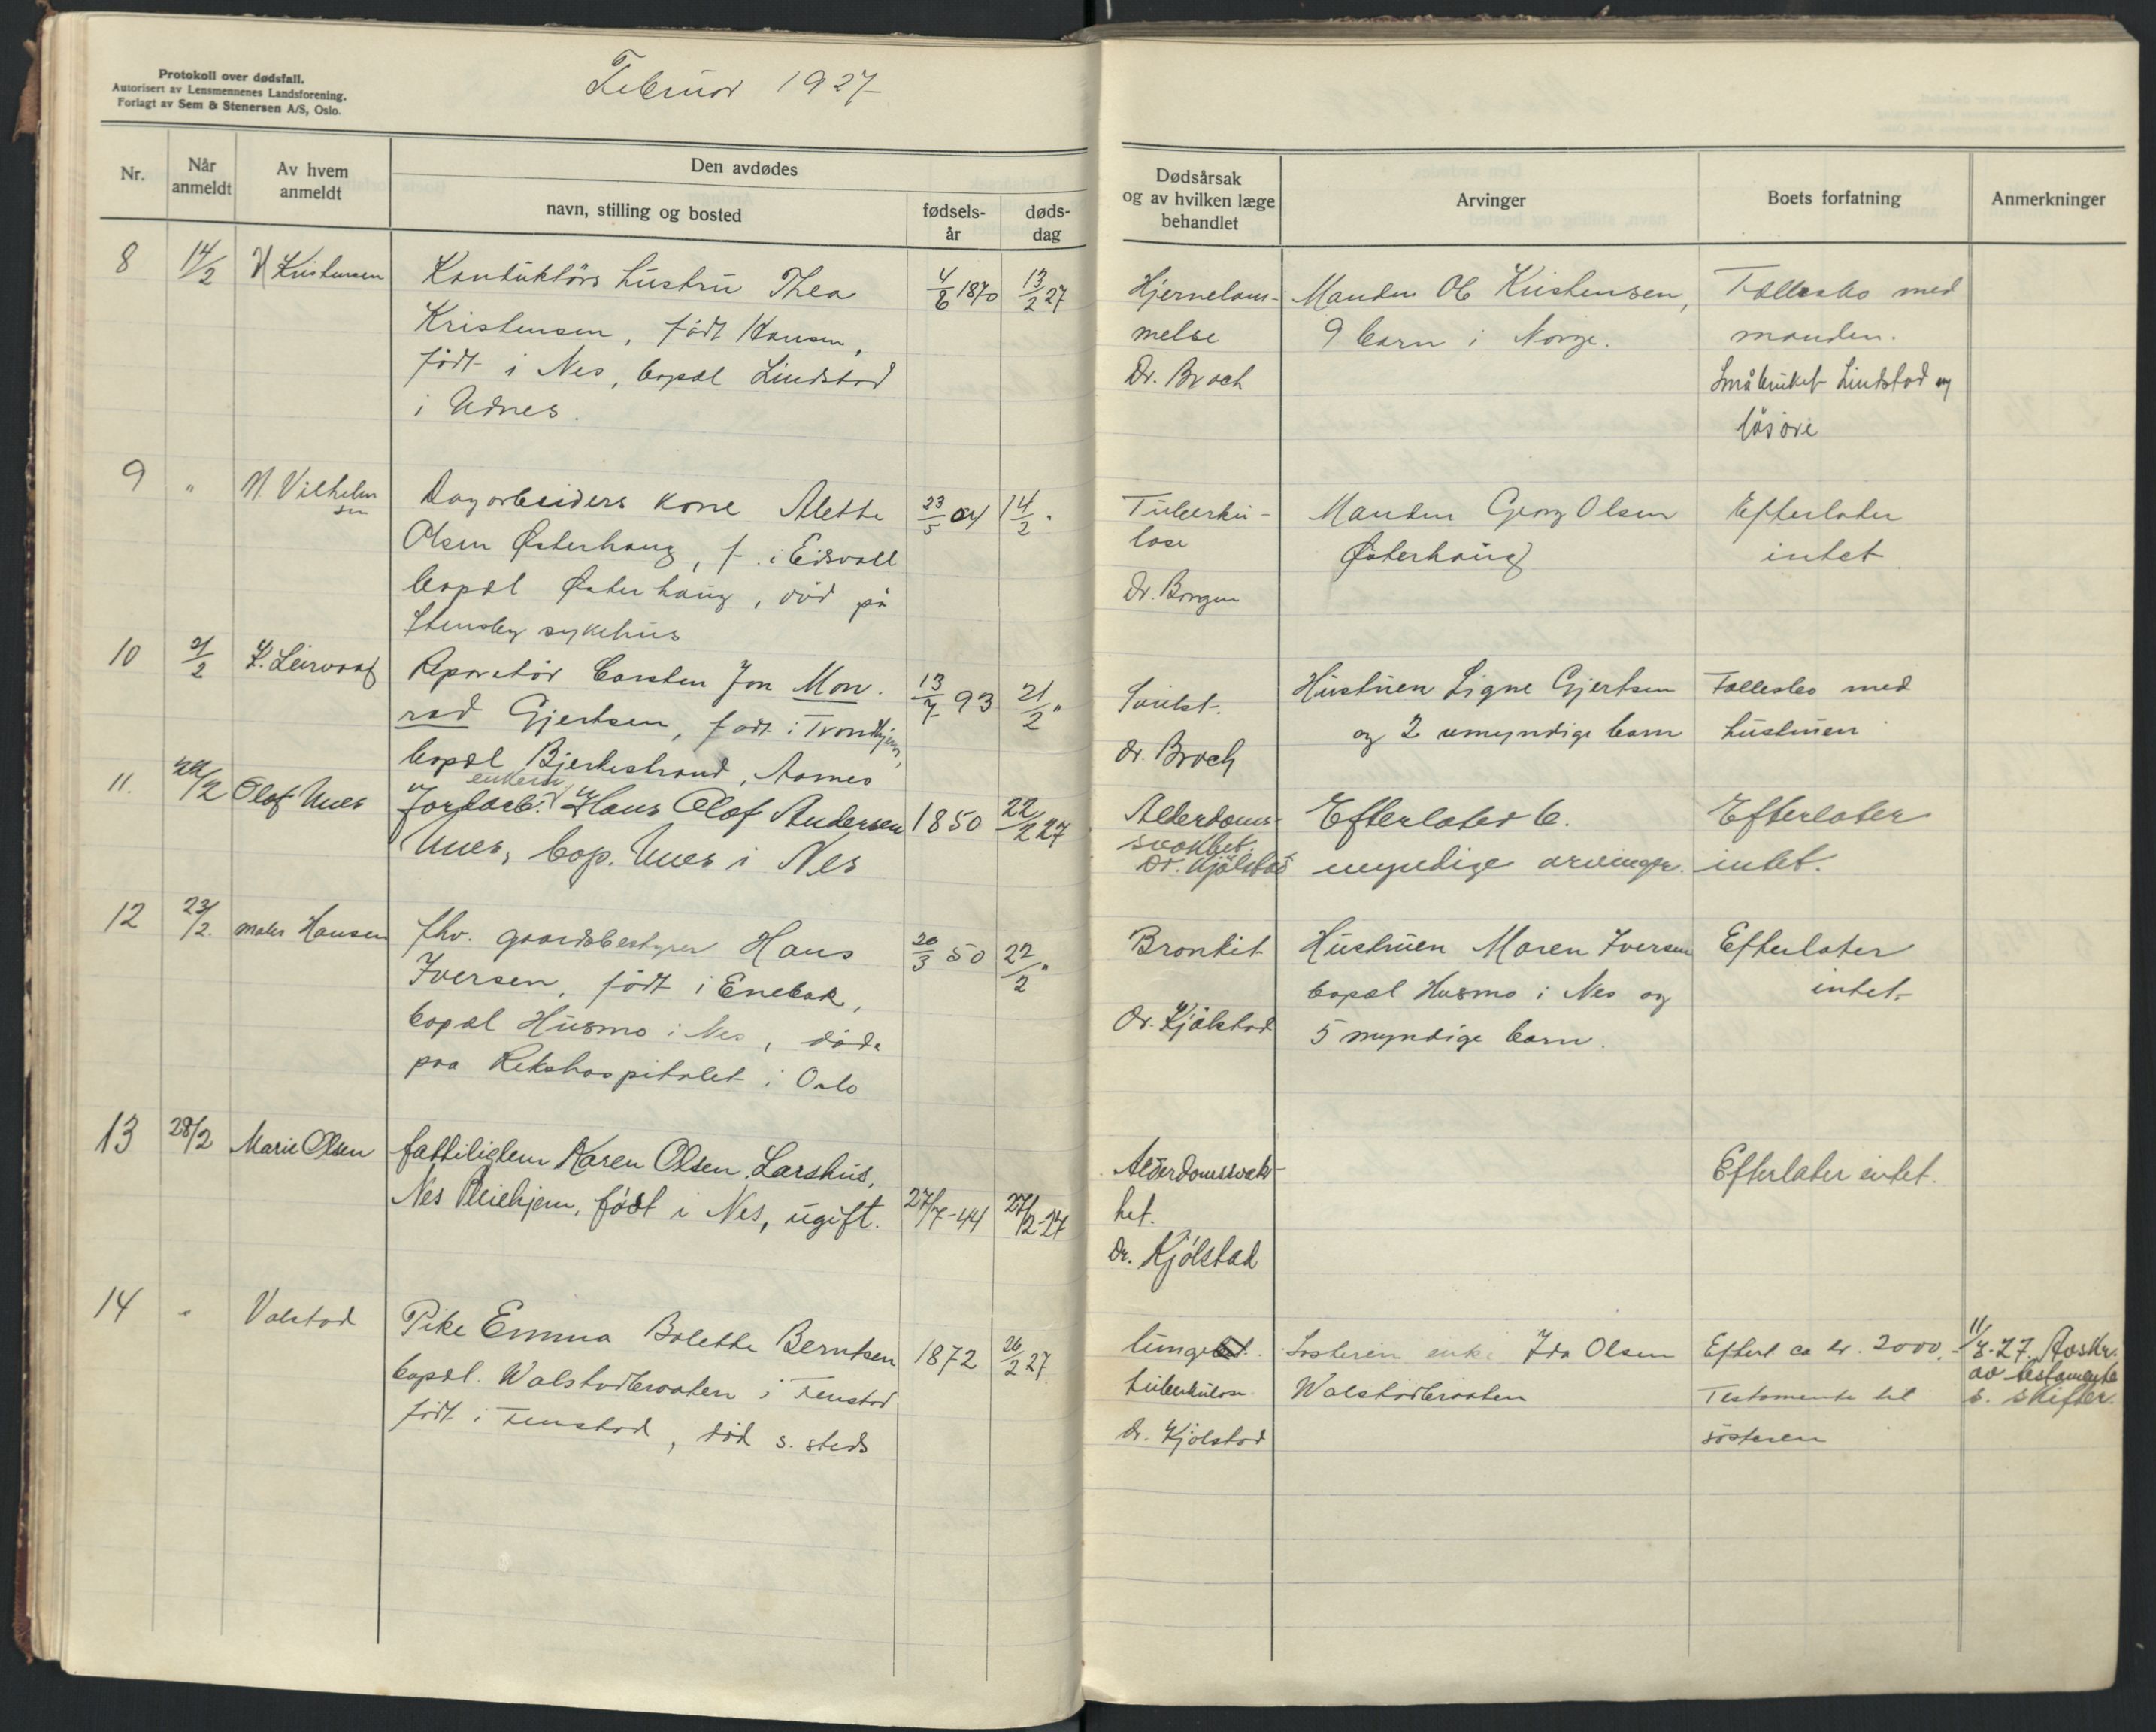 Protokoll over dødsfall.
Autorisert av Lensmennenes Landsforening.
Forlagt av Sem & Stenersen A/S, Oslo.
Februar 1927
Nr.
Når anmeldt
Av hvem anmeldt
Den avdødes
navn, stilling og bosted
fødsels-år
døds-dag
Dødsårsak
og av hvilken læge
behandlet
Arvinger
Boets forfatning
Anmerkninger
8 14/2 Kristensen
Konduktörs hustru Thea
Kristensen, född Hansen,
född i Nes, bopæl Lindstad
i Udnes.
4/6 1870 13/2 27
Hjernelam-
melse
Dr. Broch
Manden Ole Kristensen,
9 barn i Norge.
Fællesbo med
manden.
Småbruket Lindstad og
lösöre
9 " N. Vilhelm
sen
Dagarbeiders kone Alette
Olsen Østerhaug, f. i Eidsvoll
bopæl Østerhaug, död på
Stensby sykehus
23/5 04 14/2 "
Tuberku-
lose
Dr. Borgen
Manden Georg Olsen
Østerhaug
Efterlater
intet
10 2/2 Leirvaag
Reparatör Carsten Jon Mon-
rad Gjertsen, född i Trondhjem,
bopæl Bjerkestrand, Aarnes
13/7 93 21/2 "
Dr. Broch
Hustruen Signe Gjertsen
og 2 umyndige barn
Fællesbo med
hustruen
11. 22/2 Olof Unes
enkem.
Jordarb. Hans Olof Andersen
Unes, bop. Unes i Nes
1850 22/2 27
Alderdoms-
svakhet.
Dr. Kjölstad
Efterlater 6.
myndige arvinger.
Efterlater
intet.
12 23/2. maler Hansen
fhv. gaardsbestyrer Hans
Iversen, född i Enebak,
bopæl Husmo i Nes, döde
paa Rikshospitalet i Oslo
20/3 50 22/2 "
Bronkit
Dr. Kjölstad
Hustruen Maren Iversen
bopæl Husmo i Nes og
5 myndige barn.
Efterlater
intet.
13 28/2 Marie Olsen
fattiglem Karen Olsen Larshus,
Nes Pleiehjem, född i Nes, ugift.
27/7-44 27/2-27
Alderdomssvak-
het.
Dr. Kjölstad
Efterlater intet.
14 " Valstad
Pike Emma Bolette Berntsen
bopæl. Walstadbraaten i Fenstad
född i Fenstad, död s. steds
1872 26/2 27
lunge
tuberkulose
Dr. Kjölstad
Søsteren enke Ida Olsen
Walstadbraaten
Efterl ca kr. 2000.-
Testamente til
søsteren
11/3-27. Avskr.
av testamente
s. skifter.